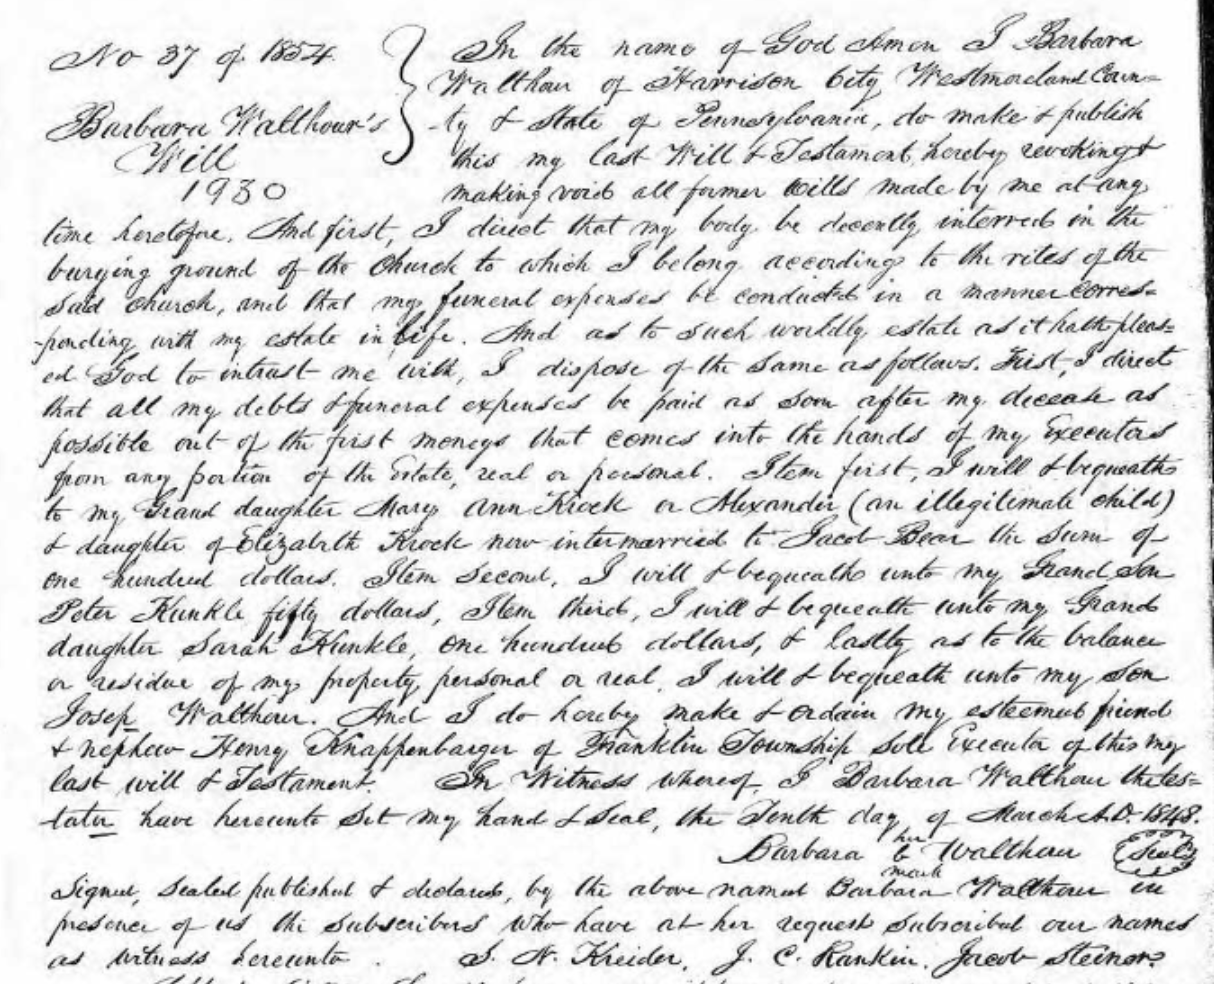 No 37 of 1854.
Barbara Walthour's
Will
1930
In the name of God Amen I Barbara
Walthour of Harrison City Westmoreland Coun=
-ty & State of Pennsylvania, do make & publish
this my last Will & Testament, hereby revoking &
making void all former wills made by me at any
time heretofore. And first, I direct that my body be decently interred in the
burying ground of the Church to which I belong according to the rites of the
said church, and that my funeral expenses be conducted in a manner corres=
-ponding with my estate in life. And as to such worldly estate as it hath pleas=
ed God to intrust me with, I dispose of the same as follows. First, I direct
that all my debts & funeral expenses be paid as soon after my decease as
possible out of the first moneys that comes into the hands of my Executors
from any portion of the Estate, real or personal. Item first, I will & bequeath
to my Grand daughter Mary Ann Krock or Alexander (an illegitimate child)
& daughter of Elizabeth Krock now intermarried to Jacob Bear the sum of
one hundred dollars. Item second, I will & bequeath unto my Grand Son
Peter Kunkle fifty dollars, Item third, I will & bequeath unto my Grand
daughter Sarah Kunkle, one hundred dollars, & lastly as to the balance
or residue of my property personal or real, I will & bequeath unto my son
Josep Walthour. And I do hereby make & ordain my esteemed friend
& nephew Henry Knappenbarger of Franklin Township sole Executor of this my
last will & Testament. In Witness whereof, I Barbara Walthour the tes=
-tator have hereunto set my hand & seal, the Tenth day of March A.D. 1848.
her
Barbara Walthour Seal
mark
Signed, sealed published & declared, by the above named Barbara Walthour in
presence of us the subscribers who have at her request subscribed our names
as witness hereunto. S. N. Kreider, J. C. Rankin, Jacob Steiner.